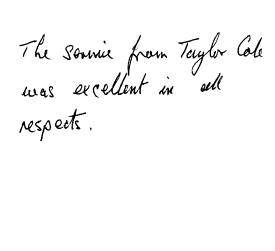 The service from Taylor Cole
was excellent in all
respects.